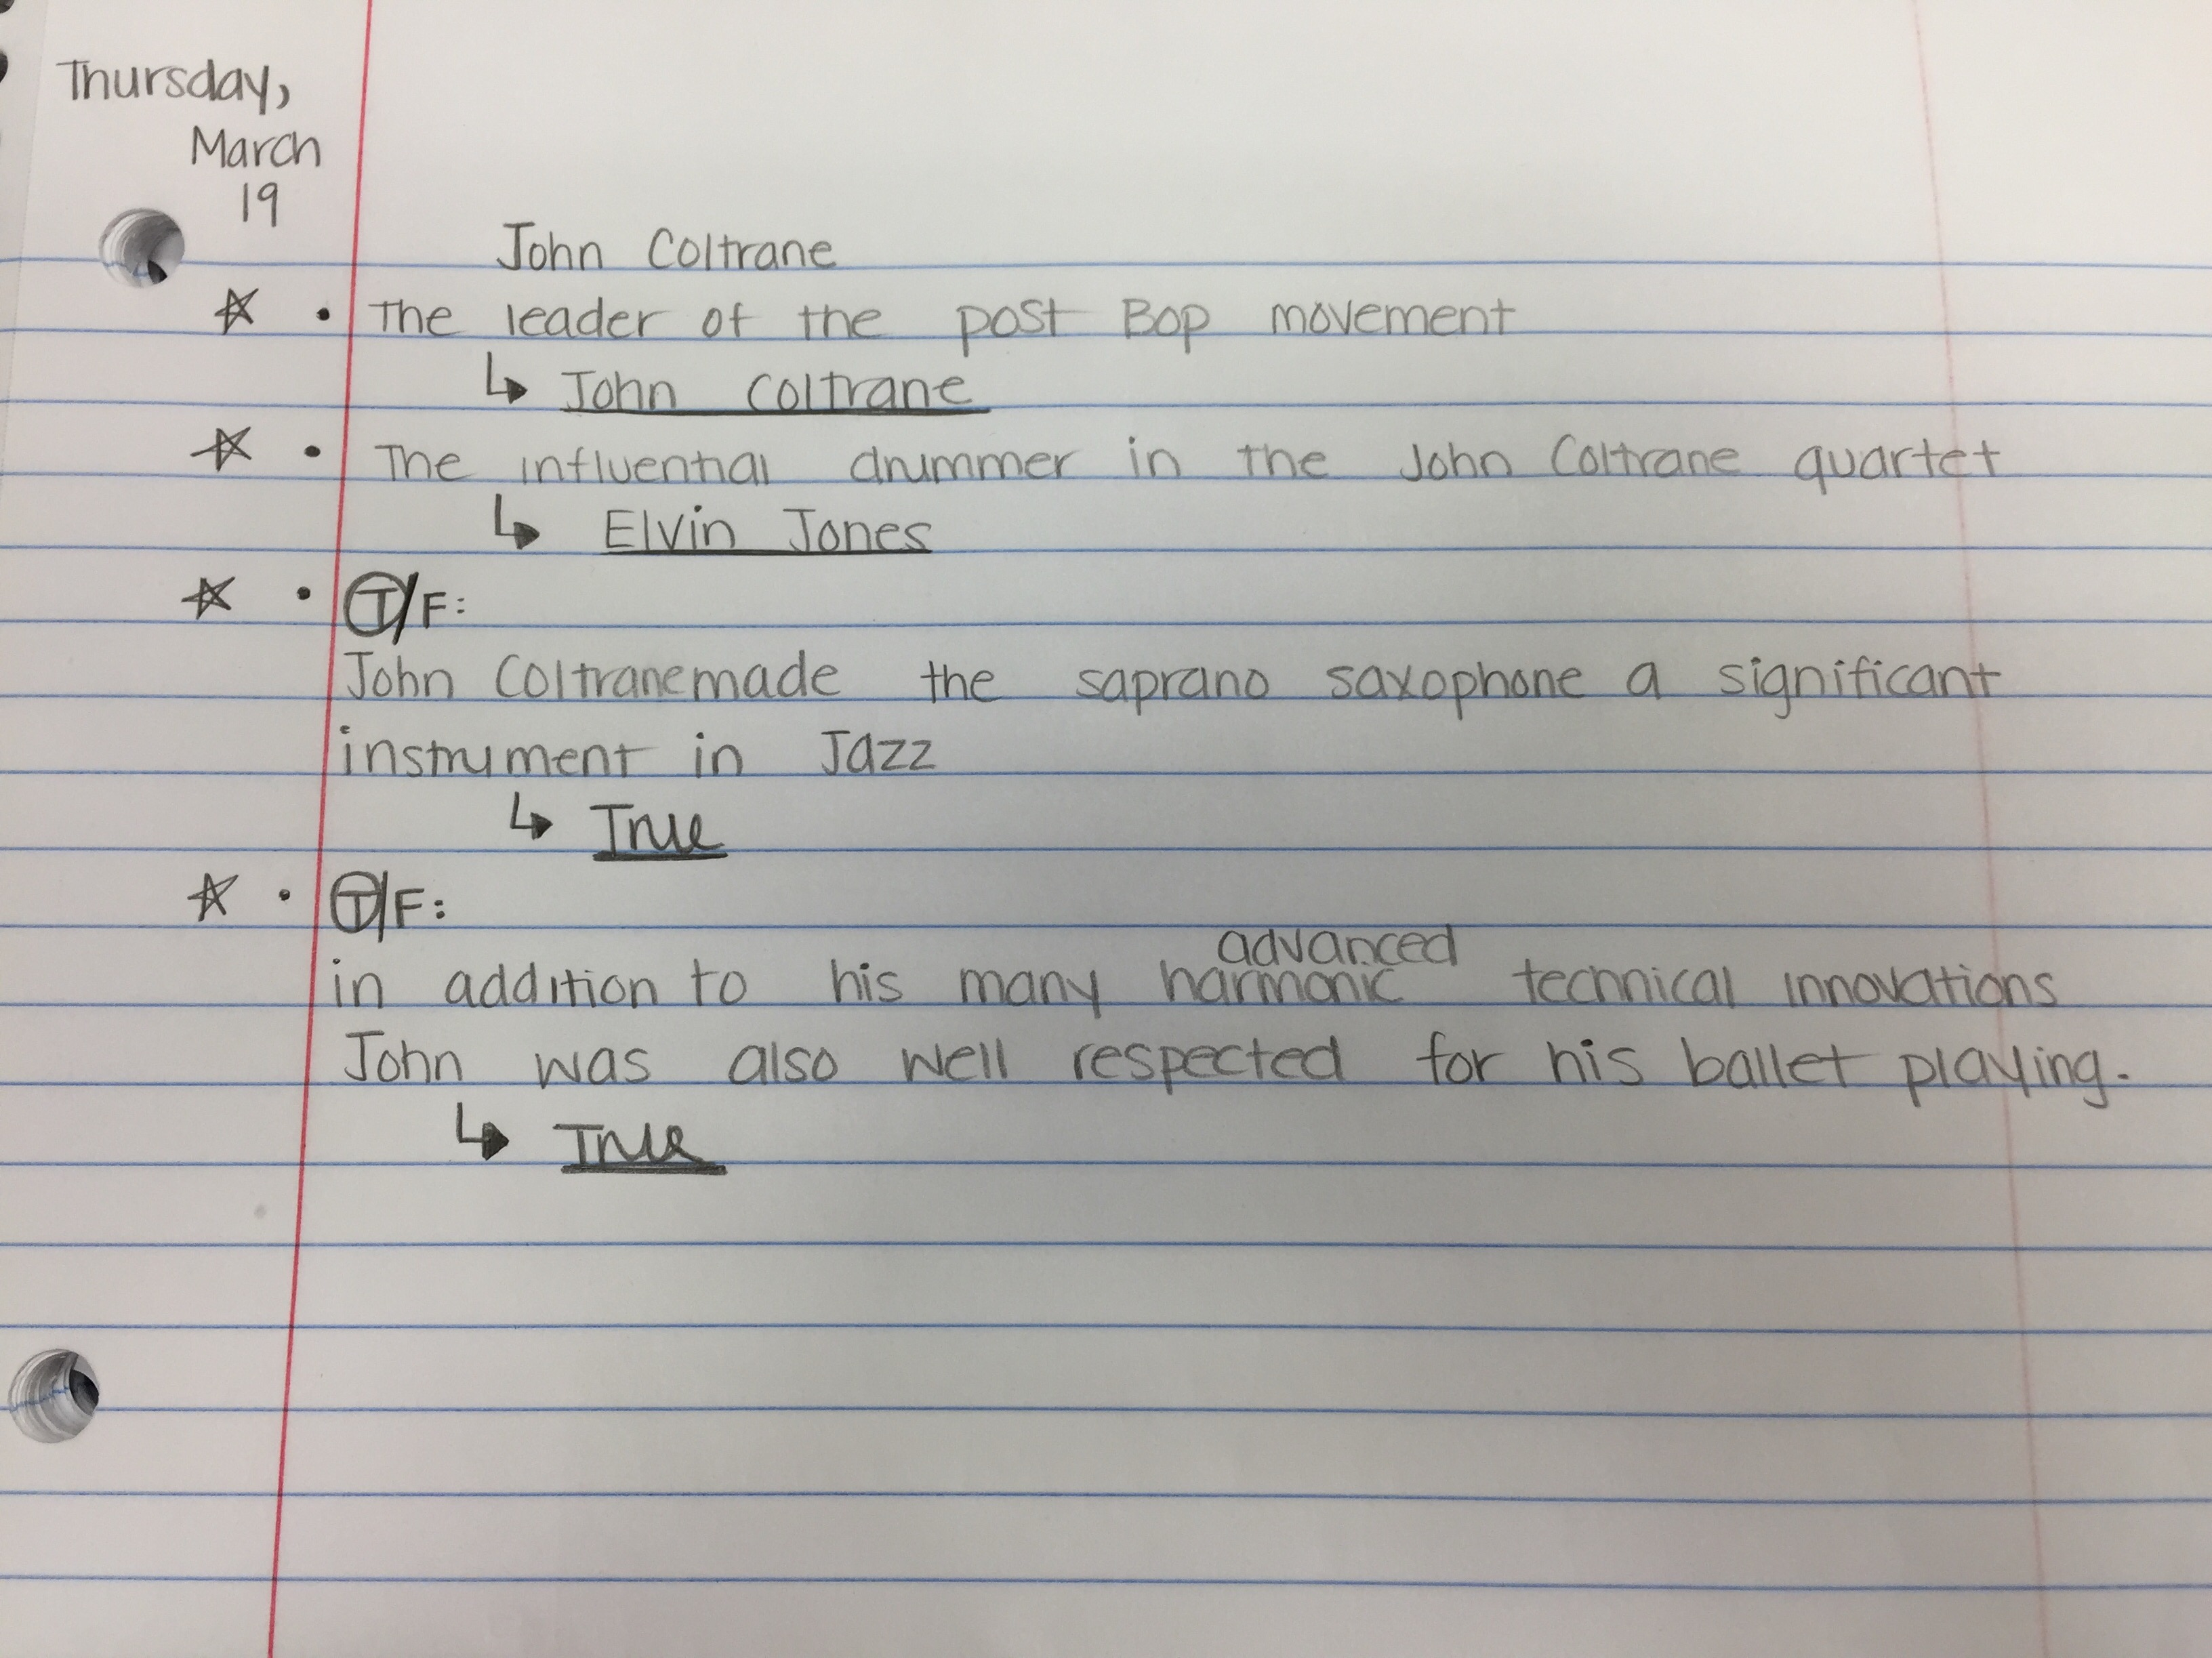 Thursday,
March
19
John Coltrane
☆ • The leader of the post Bop movement
↳ John Coltrane
☆ • The influential drummer in the John Coltrane quartet
↳ Elvin Jones
☆ • T/F:
John Coltrane made the saprano saxophone a significant
instrument in Jazz
↳ True
☆ • T/F:
advanced
in addition to his many harmonic technical innovations
John was also well respected for his ballet playing.
↳ True